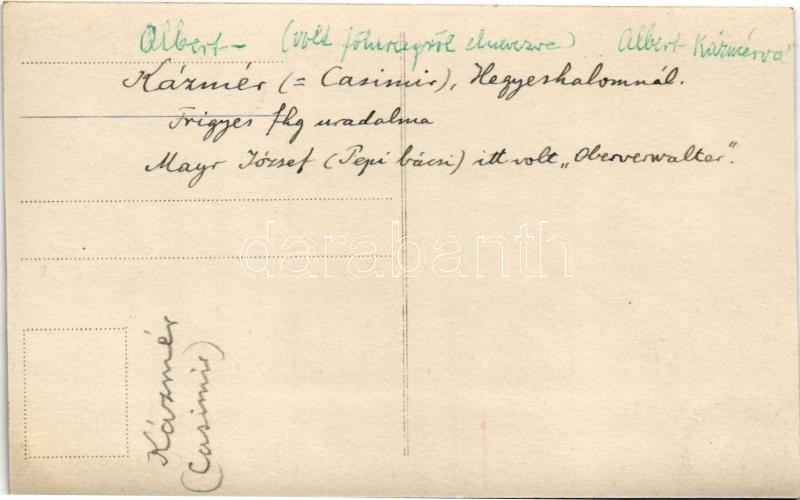 Albert- (volt főhercegről elnevezve) Albert Kázmérvá
Kázmér (= Casimir), Hegyeshalomnál.
Frigyes fhg uradalma
Mayr József (Pepi bácsi) itt volt „Oberverwalter".
darabanth
Kázmér
(Casimir)